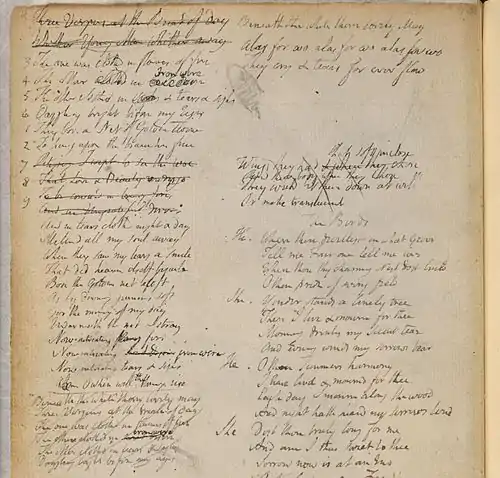 Three Virgins at the break of Day
Whither Young Man whither away
3 The one was clothd in flames of fire
4 The other clothd in iron wire
5 The other clothd in tears & sighs
6 Dazzling bright before my Eyes
1 They bore a Net of Golden twine
2 To hang upon the Branches fine
7 Pitying I wept to see the woe
8 That Love & Beauty undergo
9 To be consumd in burning fires
And in Ungratified desires
And in tears clothd night & day
Melted all my soul away
When they saw my tears a smile
That did heaven itself beguile
Bore the Golden net aloft
As by downy pinions soft
Oer the morning of my day
Underneath the net I stray
Now intreating flaming fire
Now intreating iron wire
Now intreating tears & sighs
When O when will the morning rise
Beneath the white thorn lovely may
Three Virgins at the break of day
The one was clothd in flames of fire
The other clothd in iron wire
The other clothd in tears & sighs
Dazzling bright before my eyes
Beneath the white thorn lovely May
Alas for wo alas for wo alas for wo
They cry & tears for ever flow
Wings they had
when they chose
They would let them down at will
Or make translucent
The Birds
He. Where thou dwellest in what Grove
Tell me Fair one tell me love
Where thou thy charming Nest dost build
O thou pride of every field
She. Yonder stands a lonely tree
There I live & mourn for thee
Morning drinks my silent tear
And Evening winds my sorrow bear
He. O thou Summers harmony
I have livd & mournd for thee
Each day I mourn along the wood
And night hath heard my sorrows loud
She Dost thou truly long for me
And am I thus sweet to thee
Sorrow now is at an End